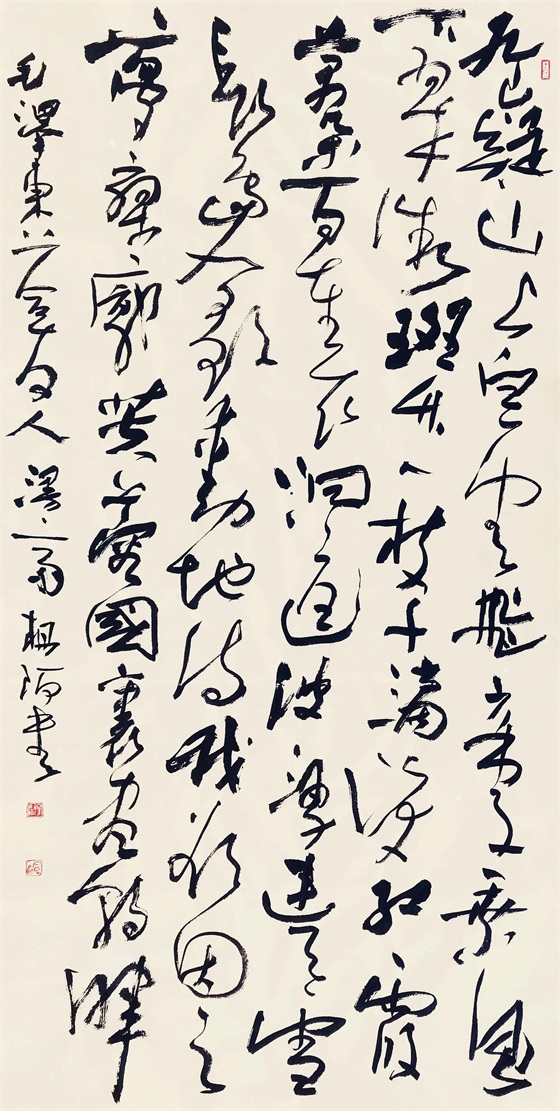 九嶷山上白雲飛帝子乘風
下翠微斑竹一枝千滴淚紅霞
萬朵百重衣洞庭波湧連天雪
長島人歌動地詩我欲因之
夢寥廓芙蓉國裏盡朝暉
毛澤東答友人書